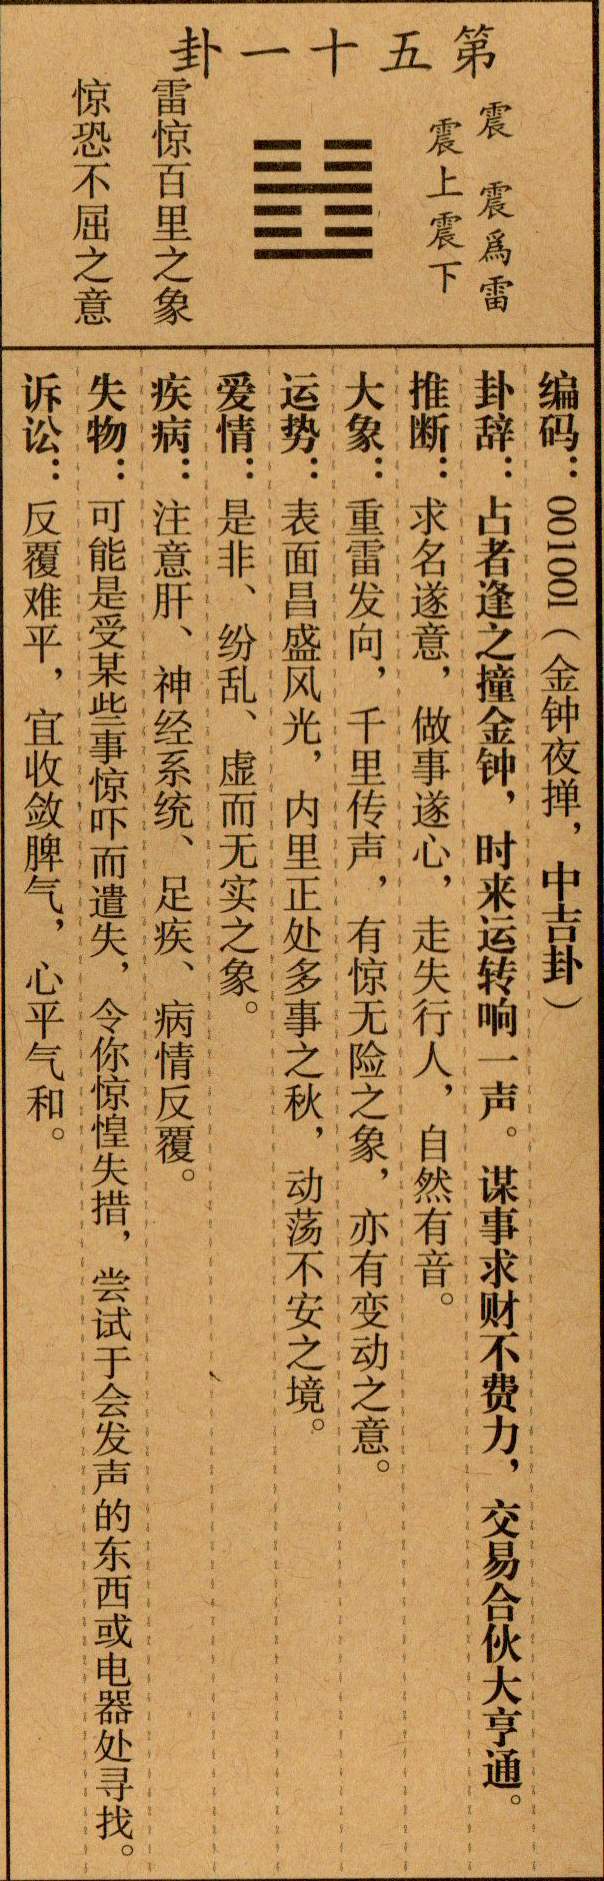 第五十一卦
震　震爲雷
震上震下
雷惊百里之象
惊恐不屈之意
编码：001001（金钟夜撞，中吉卦）
卦辞：占者逢之撞金钟，时来运转响一声。谋事求财不费力，交易合伙大亨通。
推断：求名遂意，做事遂心，走失行人，自然有音。
大象：重雷发向，千里传声，有惊无险之象，亦有变动之意。
运势：表面昌盛风光，内里正处多事之秋，动荡不安之境。
爱情：是非、纷乱、虚而无实之象。
疾病：注意肝、神经系统、足疾、病情反覆。
失物：可能是受某些事惊吓而遣失，令你惊惶失措，尝试于会发声的东西或电器处寻找。
诉讼：反覆难平，宜收敛脾气，心平气和。